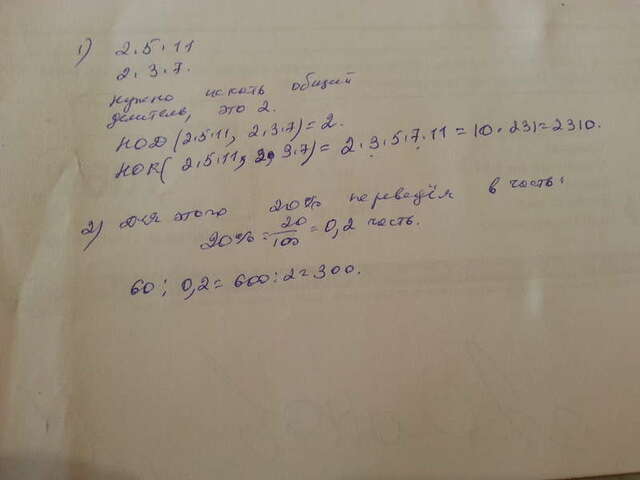 1) 2·5·11
2·3·7.
Нужно искать общий
делитель, это 2.
НОД (2·5·11, 2·3·7) = 2.
НОК( 2·5·11, 2·3·7) = 2·3·5·7·11 = 10·231 = 2310.
2) Для этого 20% переведём в часть:
20% = 20/100 = 0,2 часть.
60 : 0,2 = 600 : 2 = 300.